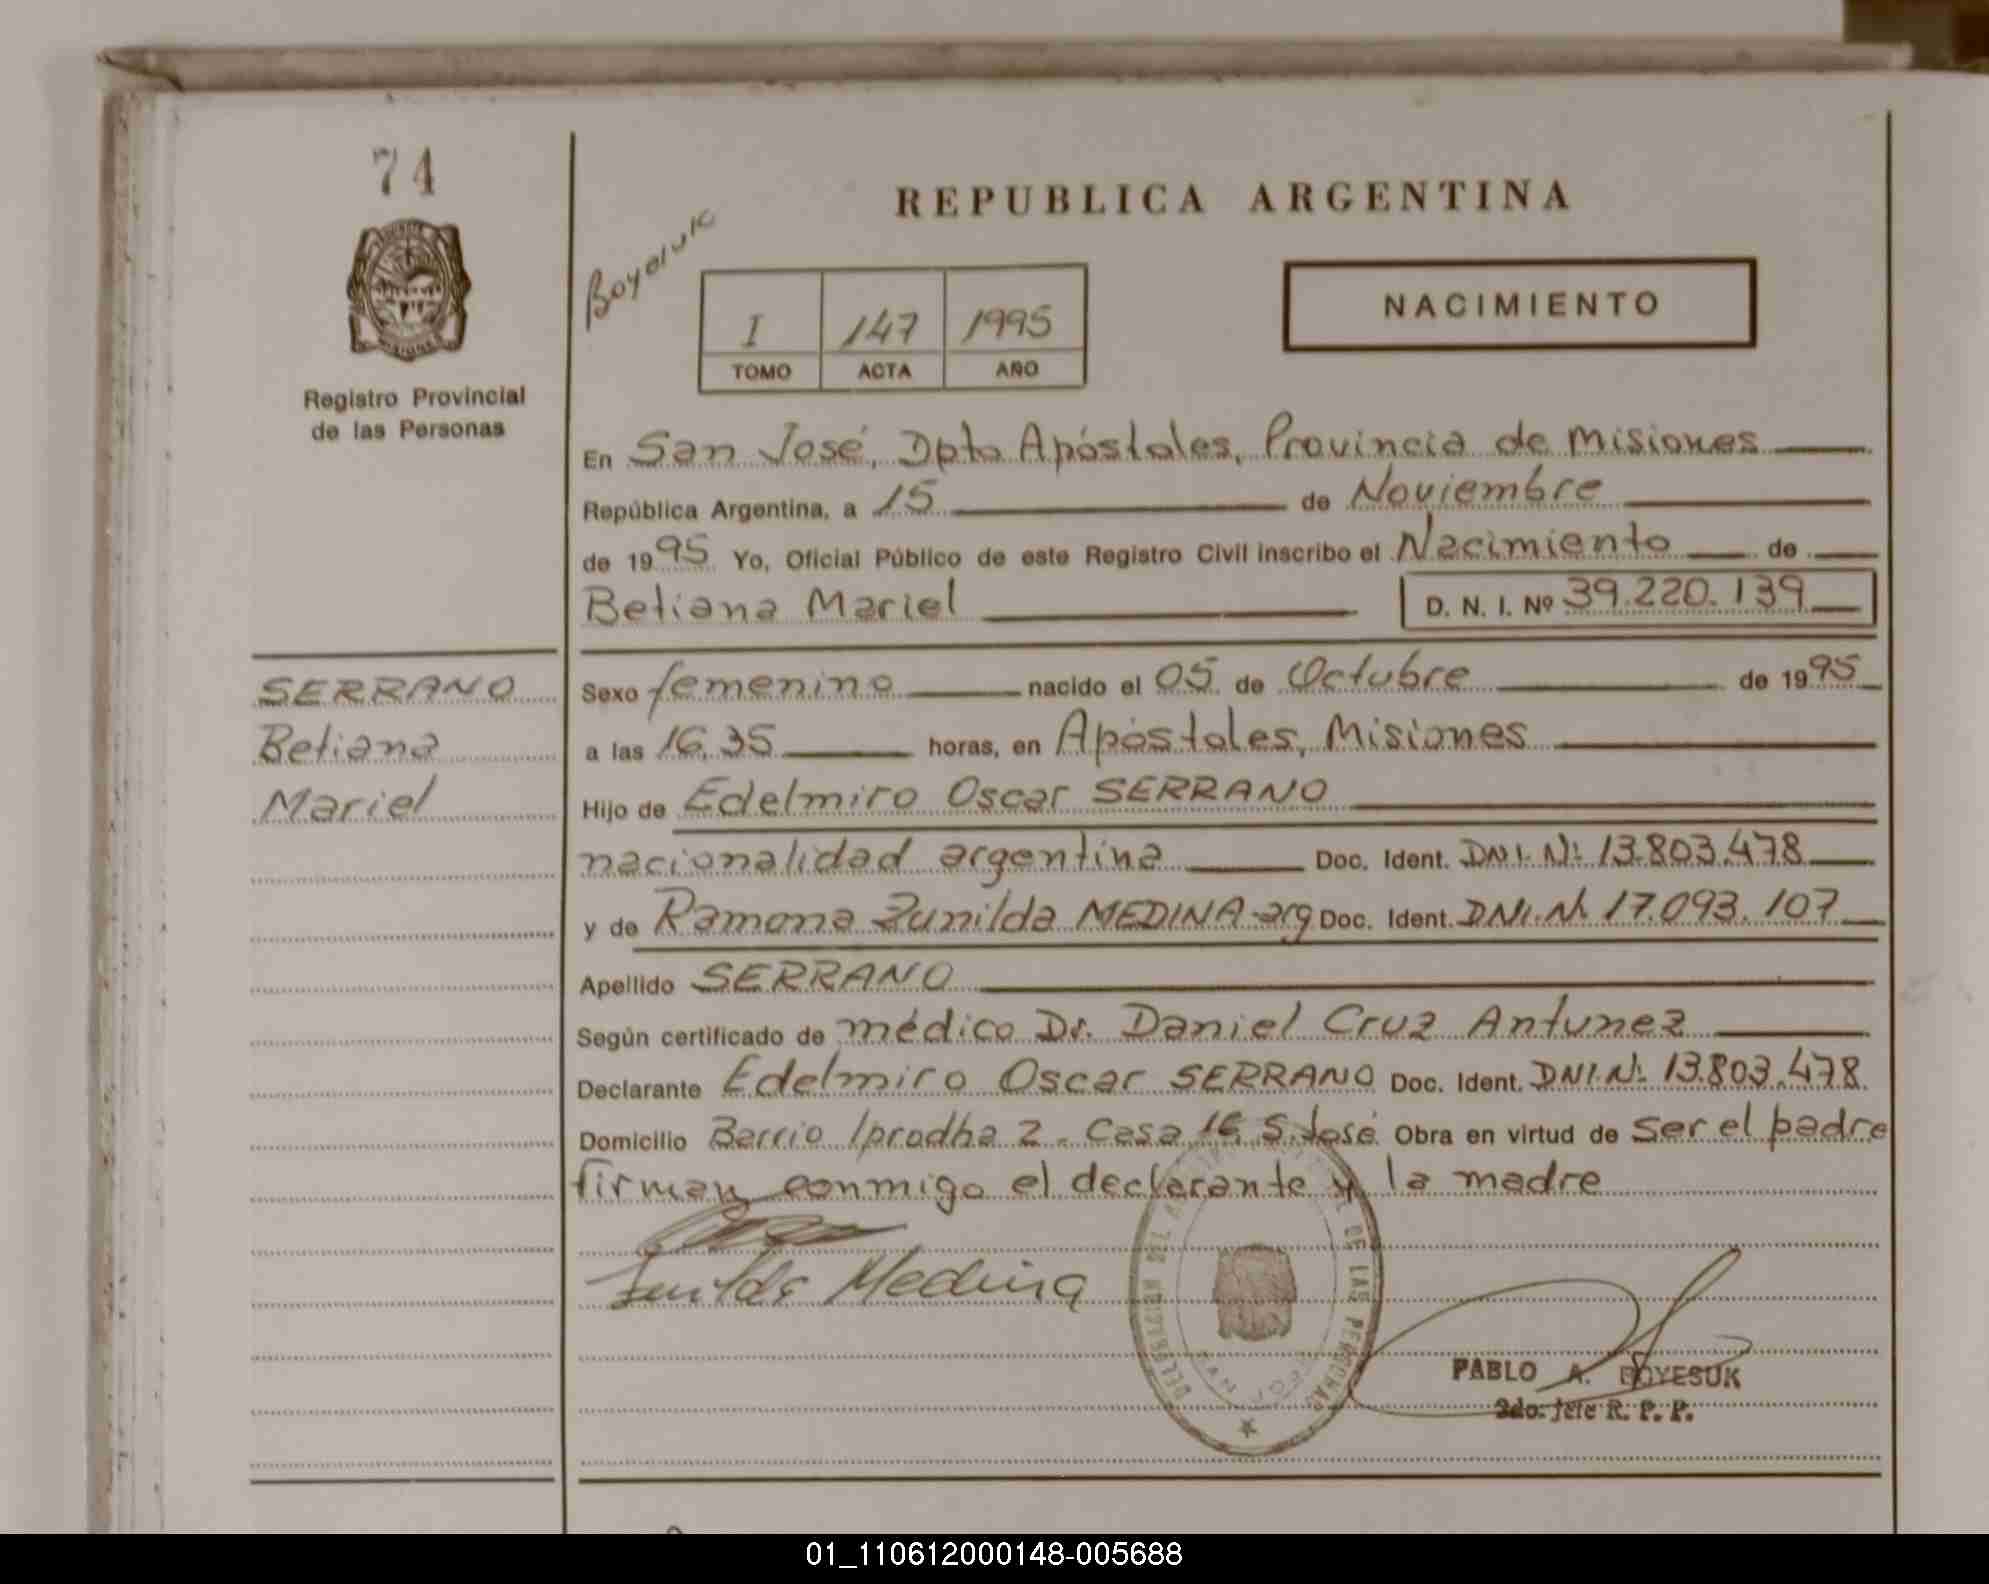 74
REPUBLICA ARGENTINA
Boyesuk
I 147 1995
TOMO ACTA AÑO
NACIMIENTO
MISIONES
Registro Provincial
de las Personas
En San José, Dpto Apóstoles, Provincia de Misiones
República Argentina, a 15 de Noviembre
de 1995 Yo, Oficial Público de este Registro Civil inscribo el Nacimiento de
Betiana Mariel D. N. I. Nº 39.220.139
SERRANO
Betiana
Mariel
Sexo femenino nacido el 05 de Octubre de 1995
a las 16,35 horas, en Apóstoles, Misiones
Hijo de Edelmiro Oscar SERRANO
nacionalidad argentina Doc. Ident. DNI. Nº 13.803.478
y de Ramona Zunilda MEDINA-arg Doc. Ident. DNI. Nº 17.093.107
Apellido SERRANO
Según certificado de médico Dr. Daniel Cruz Antunez
Declarante Edelmiro Oscar SERRANO Doc. Ident. DNI.Nº 13.803.478
Domicilio Barrio Iprodha 2. Casa 16, S. José Obra en virtud de ser el padre
firman conmigo el declarante y la madre
Zunilda Medina
DE LAS PERSONAS
PABLO A. BOYESUK
2do. Jefe R. P. P.
01_110612000148-005688